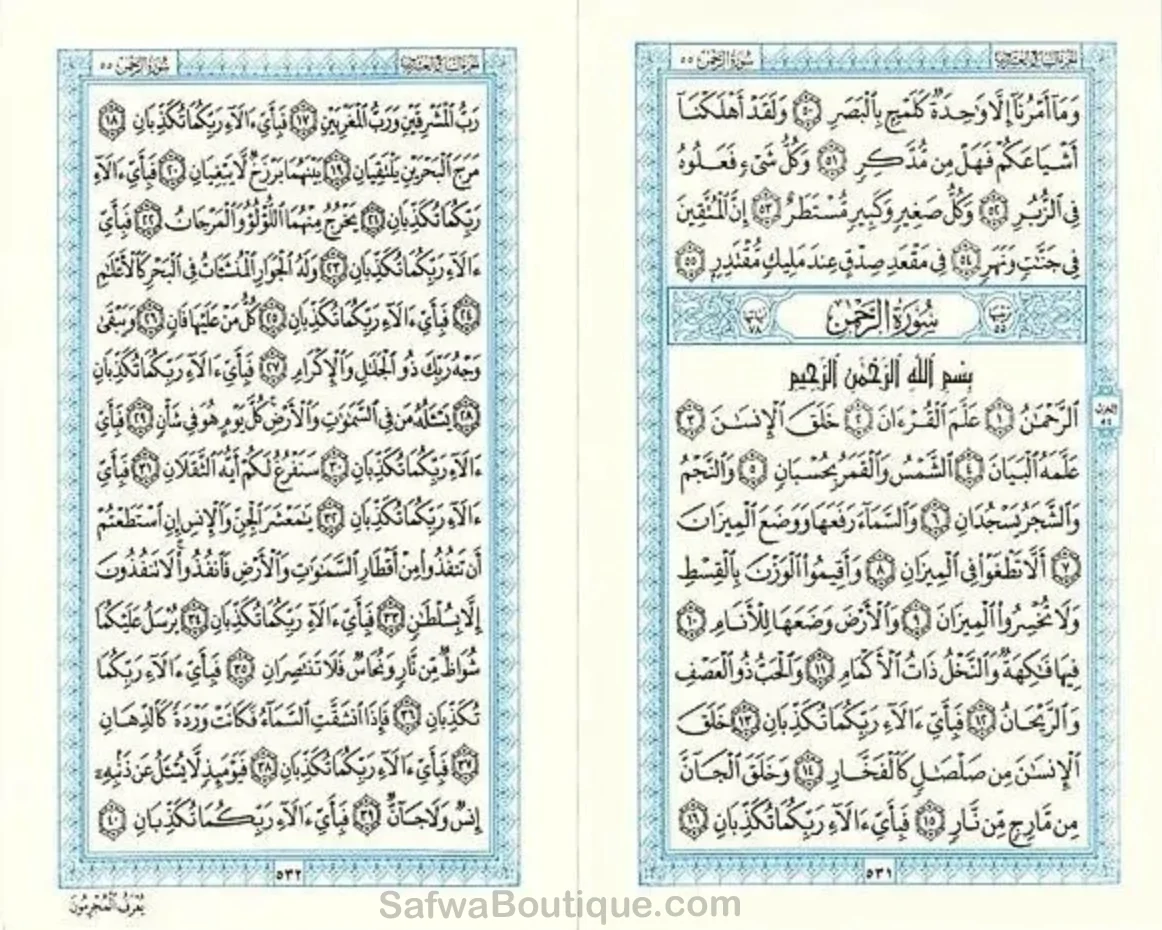 سُورَةُ الرَّحْمٰن ٥٥
وَمَآ أَمْرُنَآ إِلَّا وَٰحِدَةٌ كَلَمْحٍۭ بِٱلْبَصَرِ ٥٠ وَلَقَدْ أَهْلَكْنَآ
أَشْيَاعَكُمْ فَهَلْ مِن مُّدَّكِرٍ ٥١ وَكُلُّ شَىْءٍ فَعَلُوهُ
فِى ٱلزُّبُرِ ٥٢ وَكُلُّ صَغِيرٍ وَكَبِيرٍ مُّسْتَطَرٌ ٥٣ إِنَّ ٱلْمُتَّقِينَ
فِى جَنَّٰتٍ وَنَهَرٍ ٥٤ فِى مَقْعَدِ صِدْقٍ عِندَ مَلِيكٍ مُّقْتَدِرٍۭ ٥٥
ترتيبها ٥٥ سُورَةُ الرَّحْمٰن آياتها ٧٨
بِسْمِ ٱللَّهِ ٱلرَّحْمَٰنِ ٱلرَّحِيمِ
ٱلرَّحْمَٰنُ ١ عَلَّمَ ٱلْقُرْءَانَ ٢ خَلَقَ ٱلْإِنسَٰنَ ٣
عَلَّمَهُ ٱلْبَيَانَ ٤ ٱلشَّمْسُ وَٱلْقَمَرُ بِحُسْبَانٍ ٥ وَٱلنَّجْمُ
وَٱلشَّجَرُ يَسْجُدَانِ ٦ وَٱلسَّمَآءَ رَفَعَهَا وَوَضَعَ ٱلْمِيزَانَ
٧ أَلَّا تَطْغَوْا۟ فِى ٱلْمِيزَانِ ٨ وَأَقِيمُوا۟ ٱلْوَزْنَ بِٱلْقِسْطِ
وَلَا تُخْسِرُوا۟ ٱلْمِيزَانَ ٩ وَٱلْأَرْضَ وَضَعَهَا لِلْأَنَامِ ١٠
فِيهَا فَٰكِهَةٌ وَٱلنَّخْلُ ذَاتُ ٱلْأَكْمَامِ ١١ وَٱلْحَبُّ ذُو ٱلْعَصْفِ
وَٱلرَّيْحَانُ ١٢ فَبِأَىِّ ءَالَآءِ رَبِّكُمَا تُكَذِّبَانِ ١٣ خَلَقَ
ٱلْإِنسَٰنَ مِن صَلْصَٰلٍ كَٱلْفَخَّارِ ١٤ وَخَلَقَ ٱلْجَآنَّ
مِن مَّارِجٍ مِّن نَّارٍ ١٥ فَبِأَىِّ ءَالَآءِ رَبِّكُمَا تُكَذِّبَانِ ١٦
٥٣١
الحزب ٥٤
سُورَةُ الرَّحْمٰن ٥٥
رَبُّ ٱلْمَشْرِقَيْنِ وَرَبُّ ٱلْمَغْرِبَيْنِ ١٧ فَبِأَىِّ ءَالَآءِ رَبِّكُمَا تُكَذِّبَانِ ١٨
مَرَجَ ٱلْبَحْرَيْنِ يَلْتَقِيَانِ ١٩ بَيْنَهُمَا بَرْزَخٌ لَّا يَبْغِيَانِ ٢٠ فَبِأَىِّ ءَالَآءِ
رَبِّكُمَا تُكَذِّبَانِ ٢١ يَخْرُجُ مِنْهُمَا ٱللُّؤْلُؤُ وَٱلْمَرْجَانُ ٢٢ فَبِأَىِّ
ءَالَآءِ رَبِّكُمَا تُكَذِّبَانِ ٢٣ وَلَهُ ٱلْجَوَارِ ٱلْمُنشَـَٔاتُ فِى ٱلْبَحْرِ كَٱلْأَعْلَٰمِ
٢٤ فَبِأَىِّ ءَالَآءِ رَبِّكُمَا تُكَذِّبَانِ ٢٥ كُلُّ مَنْ عَلَيْهَا فَانٍ ٢٦ وَيَبْقَىٰ
وَجْهُ رَبِّكَ ذُو ٱلْجَلَٰلِ وَٱلْإِكْرَامِ ٢٧ فَبِأَىِّ ءَالَآءِ رَبِّكُمَا تُكَذِّبَانِ
٢٨ يَسْـَٔلُهُۥ مَن فِى ٱلسَّمَٰوَٰتِ وَٱلْأَرْضِ كُلَّ يَوْمٍ هُوَ فِى شَأْنٍ ٢٩ فَبِأَىِّ
ءَالَآءِ رَبِّكُمَا تُكَذِّبَانِ ٣٠ سَنَفْرُغُ لَكُمْ أَيُّهَ ٱلثَّقَلَانِ ٣١ فَبِأَىِّ
ءَالَآءِ رَبِّكُمَا تُكَذِّبَانِ ٣٢ يَٰمَعْشَرَ ٱلْجِنِّ وَٱلْإِنسِ إِنِ ٱسْتَطَعْتُمْ
أَن تَنفُذُوا۟ مِنْ أَقْطَارِ ٱلسَّمَٰوَٰتِ وَٱلْأَرْضِ فَٱنفُذُوا۟ لَا تَنفُذُونَ
إِلَّا بِسُلْطَٰنٍ ٣٣ فَبِأَىِّ ءَالَآءِ رَبِّكُمَا تُكَذِّبَانِ ٣٤ يُرْسَلُ عَلَيْكُمَا
شُوَاظٌ مِّن نَّارٍ وَنُحَاسٌ فَلَا تَنتَصِرَانِ ٣٥ فَبِأَىِّ ءَالَآءِ رَبِّكُمَا
تُكَذِّبَانِ ٣٦ فَإِذَا ٱنشَقَّتِ ٱلسَّمَآءُ فَكَانَتْ وَرْدَةً كَٱلدِّهَانِ
٣٧ فَبِأَىِّ ءَالَآءِ رَبِّكُمَا تُكَذِّبَانِ ٣٨ فَيَوْمَئِذٍ لَّا يُسْـَٔلُ عَن ذَنۢبِهِۦٓ
إِنسٌ وَلَا جَآنٌّ ٣٩ فَبِأَىِّ ءَالَآءِ رَبِّكُمَا تُكَذِّبَانِ ٤٠
٥٣٢
يُعْرَفُ ٱلْمُجْرِمُونَ
SafwaBoutique.com